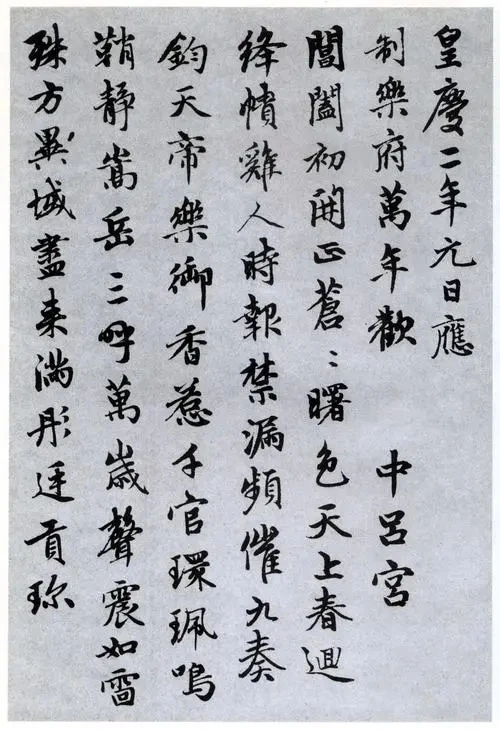 皇慶二年元日應
制樂府萬年歡　中呂宮
閶闔初開正蒼〻曙色天上春迴
絳幘雞人時報禁漏頻催九奏
鈞天帝樂御香惹千官環珮鳴
鞘靜嵩岳三呼萬歲聲震如雷
殊方異域盡来滿彤廷貢珎